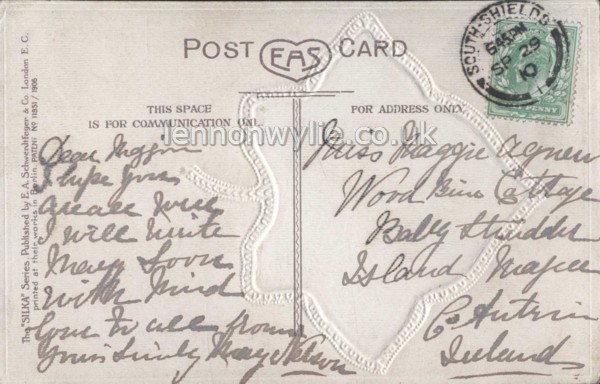 POST EAS CARD
THIS SPACE
IS FOR COMMUNICATION ONLY.
FOR ADDRESS ONLY.
lennonwylie.co.uk
SOUTH-SHIELDS
SP 29
10
PENNY
The "SILKA" Series. Published by E. A. Schwerdtfeger & Co. London E. C.
printed at their works in Berlin. PATENT No 11951/1906
Dear Maggie
I hope you
are all well
I will write
Mary Soon
with kind
love to all from
yours May Nelson
Miss Maggie Agnew
Wood Bine Cottage
Bally Strudder
Island Magee
Co Antrim
Ireland